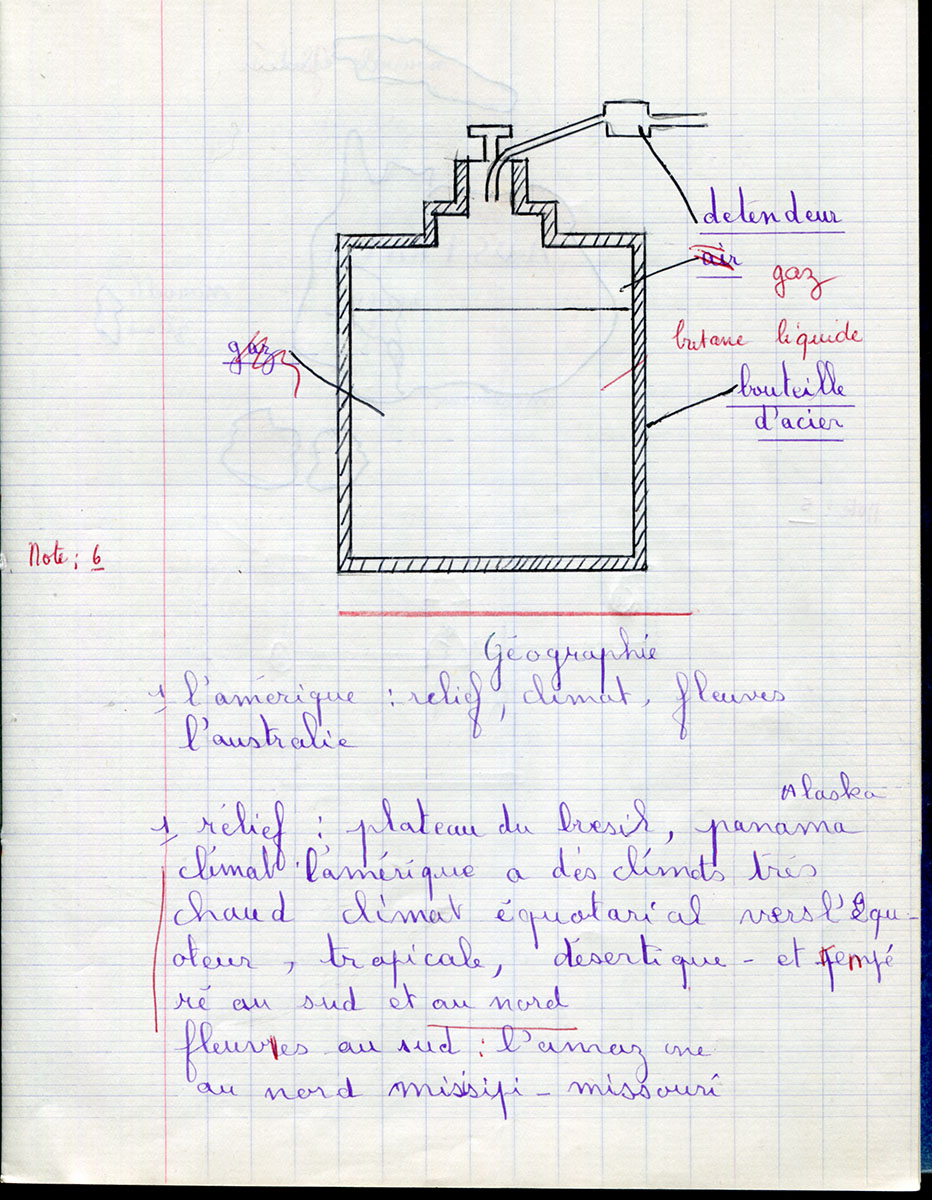 detendeur
air
gaz
gaz
butane liquide
bouteille
d'acier
Note : 6
Géographie
1 l'amérique : relief, climat, fleuves
l'australie
Alaska
1 rélief : plateau du bresil, panama
climat : l'amérique a des climats très
chaud climat équotarial vers l'équ-
ateur, tropicale, désertique - et tempé
ré au sud et au nord
fleuves au sud : l'amazone
au nord missisipi - missouri